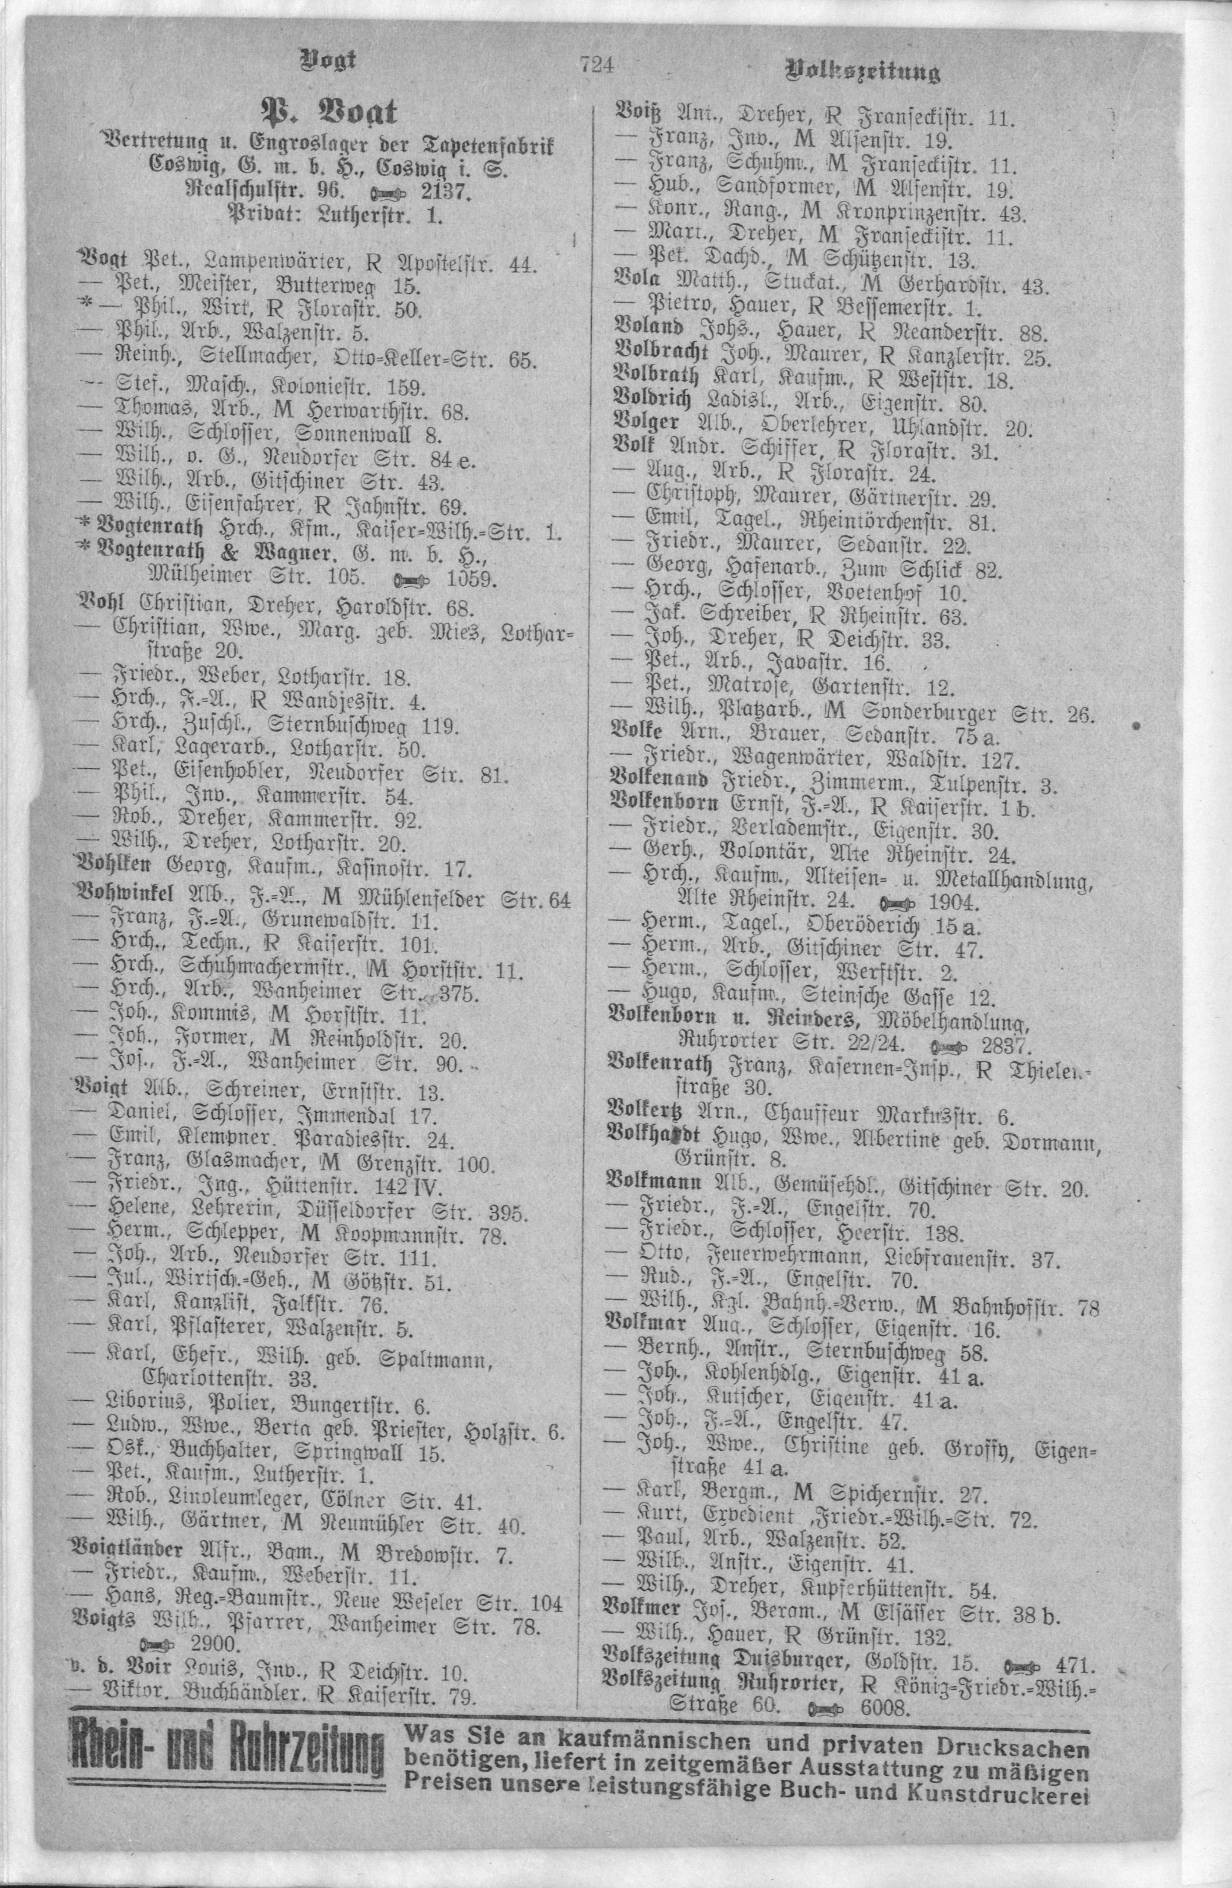 Vogt
724
Volkszeitung
P. Vogt
Vertretung u. Engroslager der Tapetenfabrik
Coswig, G. m. b. H., Coswig i. S.
Realschulstr. 96. 2137.
Privat: Lutherstr. 1.
Vogt Pet., Lampenwärter, R Apostelstr. 44.
— Pet., Meister, Butterweg 15.
* — Phil., Wirt, R Florastr. 50.
— Phil., Arb., Walzenstr. 5.
— Reinh., Stellmacher, Otto-Keller-Str. 65.
— Stef., Masch., Koloniestr. 159.
— Thomas, Arb., M Herwarthstr. 68.
— Wilh., Schlosser, Sonnenwall 8.
— Wilh., o. G., Neudorfer Str. 84 e.
— Wilh., Arb., Gitschiner Str. 43.
— Wilh., Eisenfahrer, R Jahnstr. 69.
* Vogtenrath Hrch., Kfm., Kaiser-Wilh.-Str. 1.
* Vogtenrath & Wagner, G. m. b. H.,
Mülheimer Str. 105. 1059.
Vohl Christian, Dreher, Haroldstr. 68.
— Christian, Wwe., Marg. geb. Mies, Lothar-
straße 20.
— Friedr., Weber, Lotharstr. 18.
— Hrch., F.-A., R Wandjesstr. 4.
— Hrch., Zuschl., Sternbuschweg 119.
— Karl, Lagerarb., Lotharstr. 50.
— Pet., Eisenhobler, Neudorfer Str. 81.
— Phil., Inv., Kammerstr. 54.
— Rob., Dreher, Kammerstr. 92.
— Wilh., Dreher, Lotharstr. 20.
Vohlken Georg, Kaufm., Kasinostr. 17.
Vohwinkel Alb., F.-A., M Mühlenfelder Str. 64
— Franz, F.-A., Grunewaldstr. 11.
— Hrch., Techn., R Kaiserstr. 101.
— Hrch., Schuhmachermstr., M Horststr. 11.
— Hrch., Arb., Wanheimer Str. 375.
— Joh., Kommis, M Horststr. 11.
— Joh., Former, M Reinholdstr. 20.
— Jos., F.-A., Wanheimer Str. 90.
Voigt Alb., Schreiner, Ernststr. 13.
— Daniel, Schlosser, Immendal 17.
— Emil, Klempner, Paradiesstr. 24.
— Franz, Glasmacher, M Grenzstr. 100.
— Friedr., Ing., Hüttenstr. 142 IV.
— Helene, Lehrerin, Düsseldorfer Str. 395.
— Herm., Schlepper, M Koopmannstr. 78.
— Joh., Arb., Neudorfer Str. 111.
— Jul., Wirtsch.-Geh., M Götzstr. 51.
— Karl, Kanzlist, Falkstr. 76.
— Karl, Pflasterer, Walzenstr. 5.
— Karl, Ehefr., Wilh. geb. Spaltmann,
Charlottenstr. 33.
— Liborius, Polier, Bungertstr. 6.
— Ludw., Wwe., Berta geb. Priester, Holzstr. 6.
— Osk., Buchhalter, Springwall 15.
— Pet., Kaufm., Lutherstr. 1.
— Rob., Linoleumleger, Cölner Str. 41.
— Wilh., Gärtner, M Neumühler Str. 40.
Voigtländer Alfr., Bgm., M Bredowstr. 7.
— Friedr., Kaufm., Weberstr. 11.
— Hans, Reg.-Baumstr., Neue Weseler Str. 104
Voigts Wilh., Pfarrer, Wanheimer Str. 78.
2900.
v. d. Voir Louis, Inv., R Deichstr. 10.
— Viktor, Buchhändler, R Kaiserstr. 79.
Voiß Ant., Dreher, R Franseckistr. 11.
— Franz, Inv., M Alsenstr. 19.
— Franz, Schuhm., M Franseckistr. 11.
— Hub., Sandformer, M Alsenstr. 19.
— Konr., Rang., M Kronprinzenstr. 43.
— Mart., Dreher, M Franseckistr. 11.
— Pet. Dachd., M Schützenstr. 13.
Vola Matth., Stuckat., M Gerhardstr. 43.
— Pietro, Hauer, R Bessemerstr. 1.
Voland Johs., Hauer, R Neanderstr. 88.
Volbracht Joh., Maurer, R Kanzlerstr. 25.
Volbrath Karl, Kaufm., R Weststr. 18.
Voldrich Ladisl., Arb., Eigenstr. 80.
Volger Alb., Oberlehrer, Uhlandstr. 20.
Volk Andr. Schiffer, R Florastr. 31.
— Aug., Arb., R Florastr. 24.
— Christoph, Maurer, Gärtnerstr. 29.
— Emil, Tagel., Rheintörchenstr. 81.
— Friedr., Maurer, Sedanstr. 22.
— Georg, Hafenarb., Zum Schlick 82.
— Hrch., Schlosser, Poetenhof 10.
— Jak. Schreiber, R Rheinstr. 63.
— Joh., Dreher, R Deichstr. 33.
— Pet., Arb., Javastr. 16.
— Pet., Matrose, Gartenstr. 12.
— Wilh., Platzarb., M Sonderburger Str. 26.
Volke Arn., Brauer, Sedanstr. 75 a.
— Friedr., Wagenwärter, Waldstr. 127.
Volkenand Friedr., Zimmerm., Tulpenstr. 3.
Volkenborn Ernst, F.-A., R Kaiserstr. 1 b.
— Friedr., Verlademstr., Eigenstr. 30.
— Gerh., Volontär, Alte Rheinstr. 24.
— Hrch., Kaufm., Alteisen- u. Metallhandlung,
Alte Rheinstr. 24. 1904.
— Herm., Tagel., Oberöderich 15 a.
— Herm., Arb., Gitschiner Str. 47.
— Herm., Schlosser, Werftstr. 2.
— Hugo, Kaufm., Steinsche Gasse 12.
Volkenborn u. Reinders, Möbelhandlung,
Ruhrorter Str. 22/24. 2837.
Volkenrath Franz, Kasernen-Insp., R Thielen-
straße 30.
Volkertz Arn., Chauffeur Markusstr. 6.
Volkhardt Hugo, Wwe., Albertine geb. Dormann,
Grünstr. 8.
Volkmann Alb., Gemüsehdl., Gitschiner Str. 20.
— Friedr., F.-A., Engelstr. 70.
— Friedr., Schlosser, Heerstr. 138.
— Otto, Feuerwehrmann, Liebfrauenstr. 37.
— Rud., F.-A., Engelstr. 70.
— Wilh., Kgl. Bahnh.-Verw., M Bahnhofstr. 78
Volkmar Aug., Schlosser, Eigenstr. 16.
— Bernh., Anstr., Sternbuschweg 58.
— Joh., Kohlenhdlg., Eigenstr. 41 a.
— Joh., Kutscher, Eigenstr. 41 a.
— Joh., F.-A., Engelstr. 47.
— Joh., Wwe., Christine geb. Groffy, Eigen-
straße 41 a.
— Karl, Bergm., M Spichernstr. 27.
— Kurt, Expedient ,Friedr.-Wilh.-Str. 72.
— Paul, Arb., Walzenstr. 52.
— Wilh., Anstr., Eigenstr. 41.
— Wilh., Dreher, Kupferhüttenstr. 54.
Volkmer Jos., Bergm., M Elsässer Str. 38 b.
— Wilh., Hauer, R Grünstr. 132.
Volkszeitung Duisburger, Goldstr. 15. 471.
Volkszeitung Ruhrorter, R König-Friedr.-Wilh.-
Straße 60. 6008.
Rhein- und Ruhrzeitung
Was Sie an kaufmännischen und privaten Drucksachen
benötigen, liefert in zeitgemäßer Ausstattung zu mäßigen
Preisen unsere leistungsfähige Buch- und Kunstdruckerei